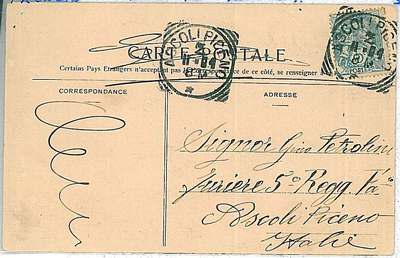 CARTE POSTALE
Certains Pays Etrangers n'acceptant pas de ce côté, se renseigner à
CORRESPONDANCE
ADRESSE
ASCOLI PICENO
ASCOLI PICENO
Signor Gino Petrolini
furiere 5º Regg. Fa
Ascoli Piceno
Italie